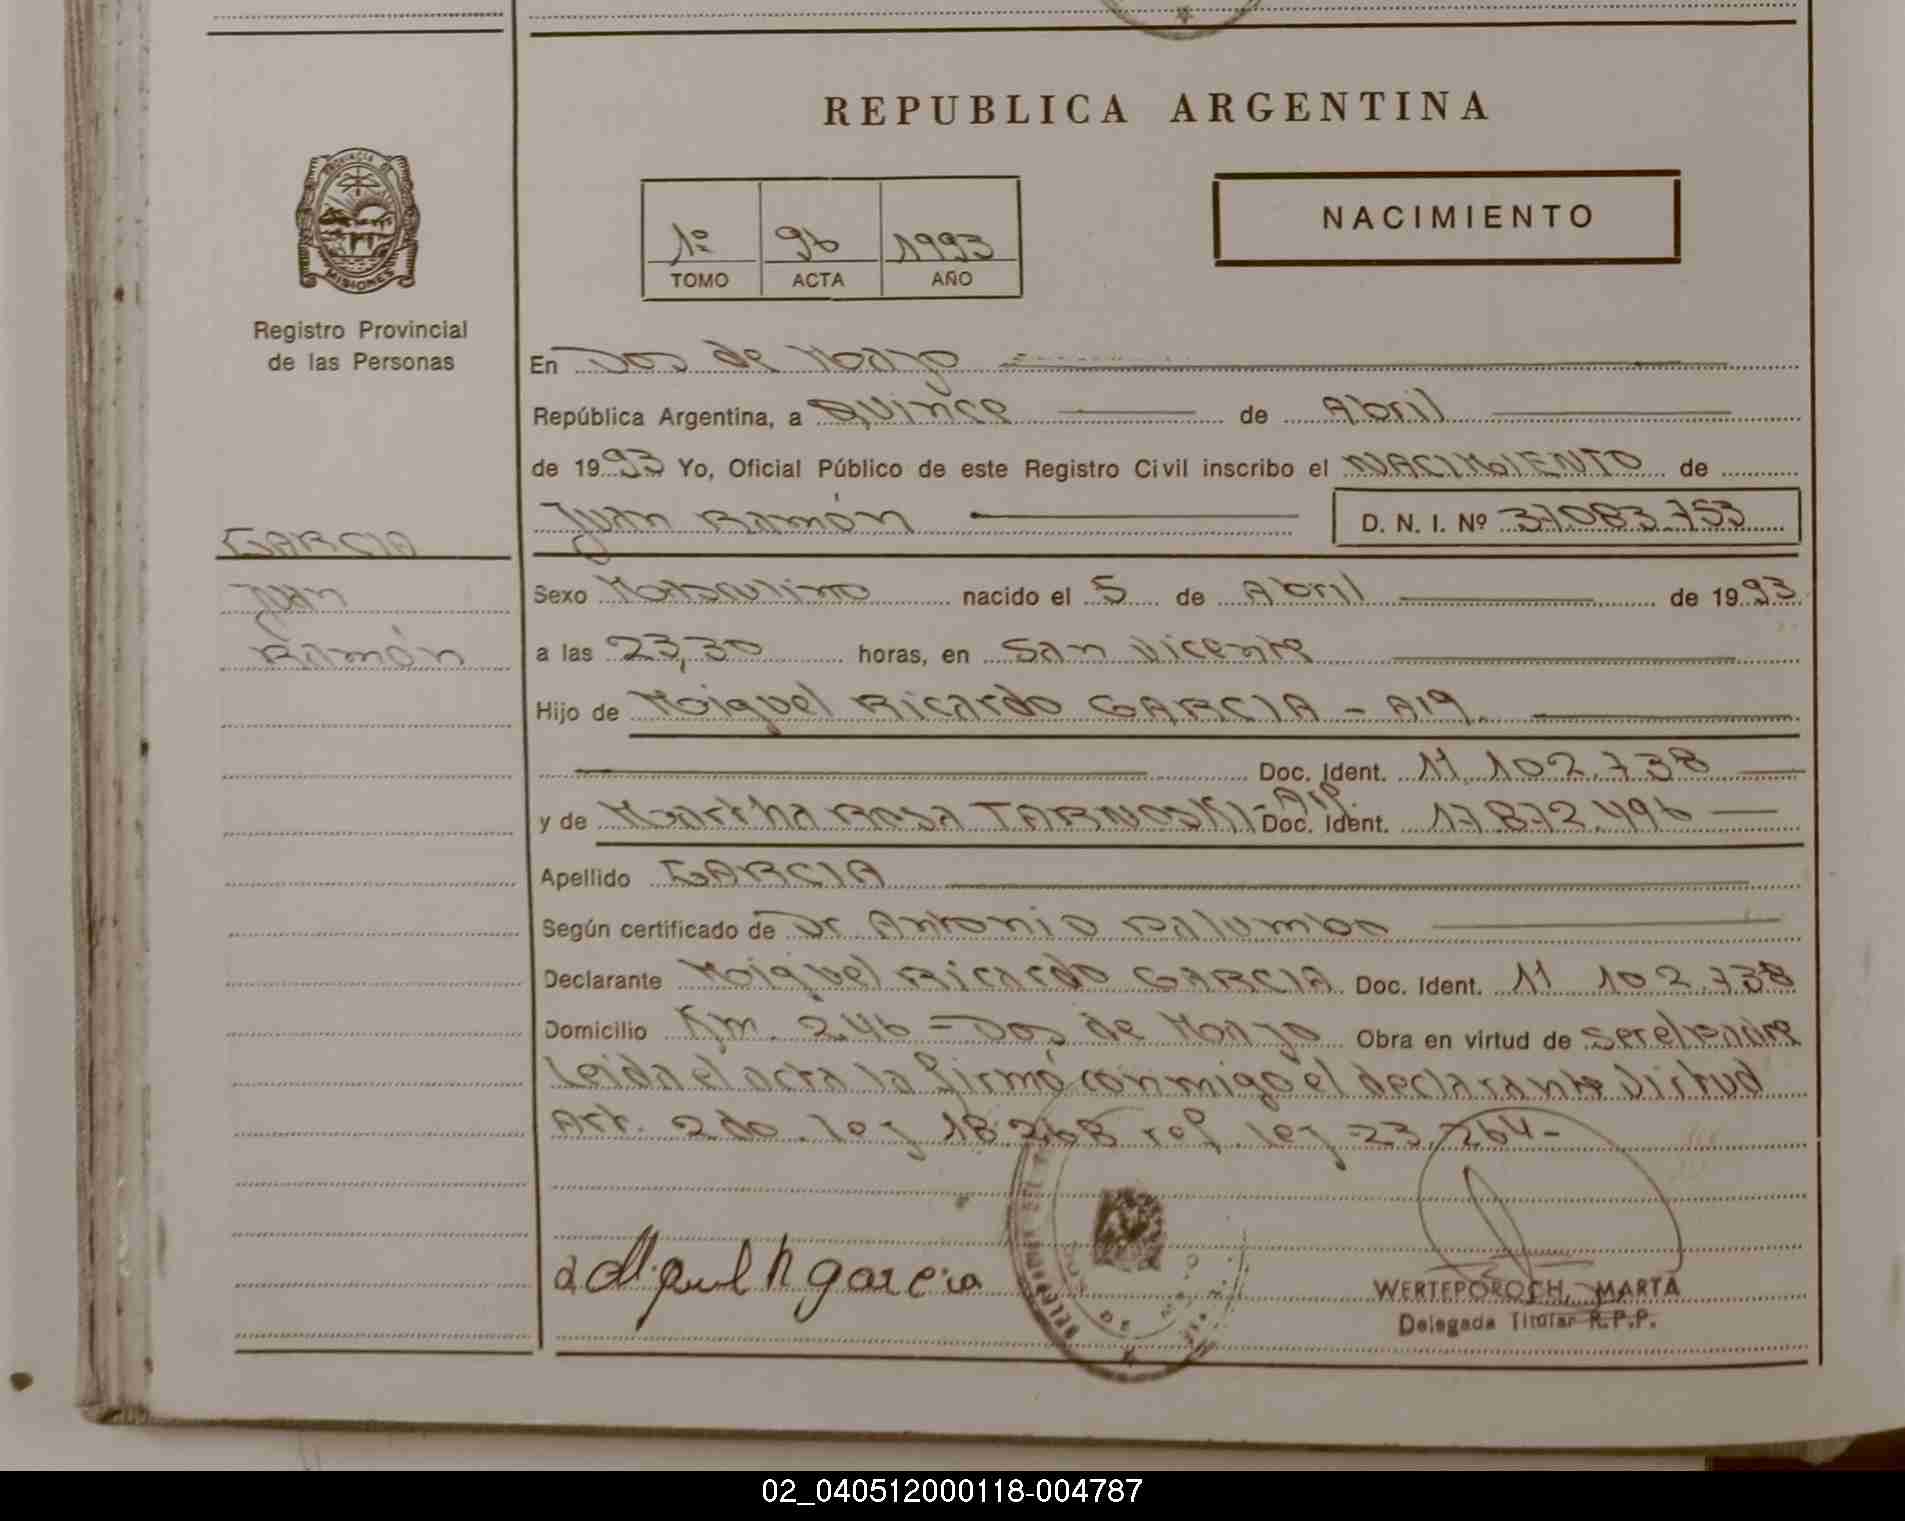 REPUBLICA ARGENTINA
PROVINCIA DE
MISIONES
Registro Provincial
de las Personas
1º 96 1993
TOMO ACTA AÑO
NACIMIENTO
En Dos de Mayo
República Argentina, a Quince de Abril
de 1993 Yo, Oficial Público de este Registro Civil inscribo el NACIMIENTO de
Juan Ramón D. N. I. Nº 37.083.753
GARCIA
Juan
Ramón
Sexo Masculino nacido el 5 de Abril de 1993
a las 23,30 horas, en San Vicente
Hijo de Miguel Ricardo GARCIA - Arg.
Doc. Ident. 11.102.738
y de Martha Rosa TARNOSKI - Arg. Doc. Ident. 17.872.496
Apellido GARCIA
Según certificado de Dr Antonio Palumbo
Declarante Miguel Ricardo GARCIA Doc. Ident. 11 102.738
Domicilio Km. 246 - Dos de Mayo Obra en virtud de ser el padre
Leida el acta la firmó conmigo el declarante Virtud
Art. 2do. ley 18.248 ref. ley 23.264-
Miguel R garcia
WERTEPOROCH, MARTA
Delegada Titular R.P.P.
02_040512000118-004787